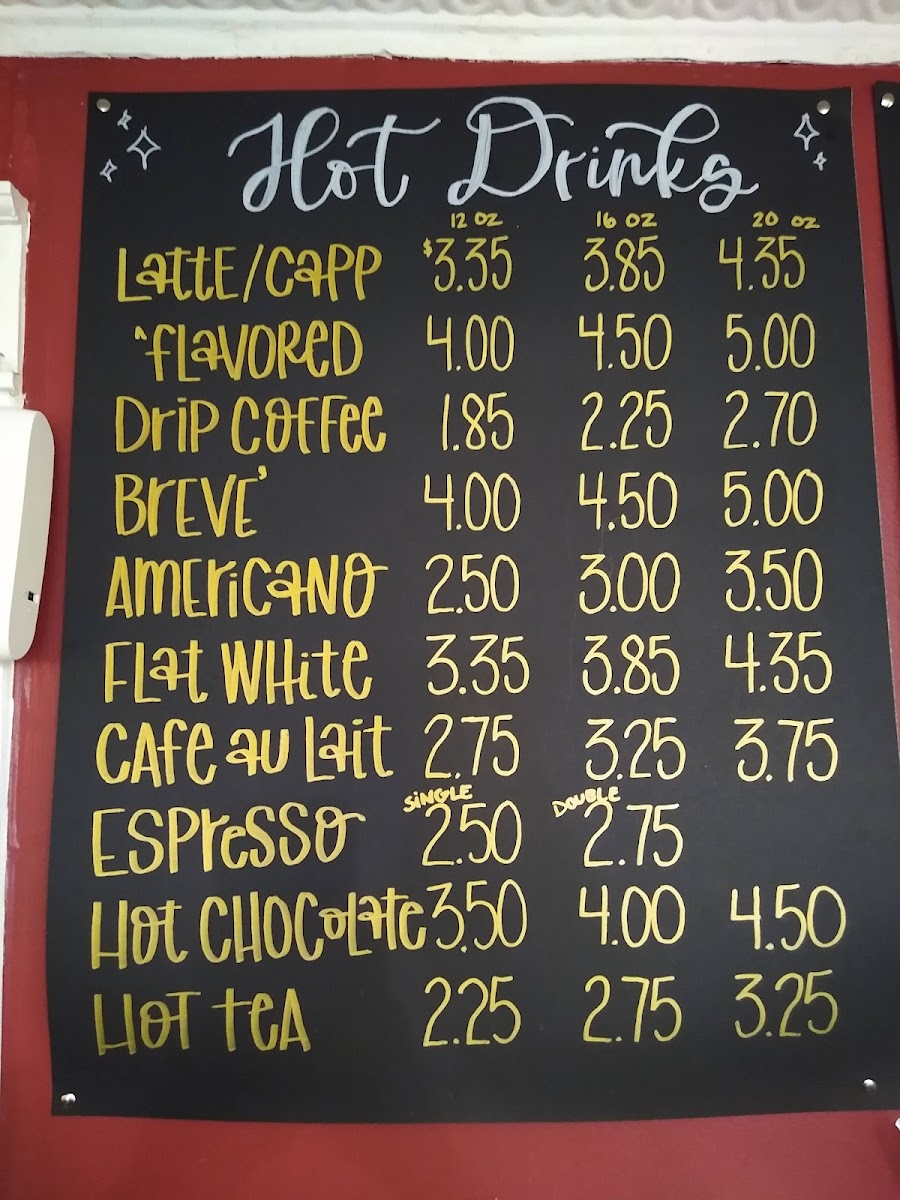 Hot Drinks
12 oz 16 oz 20 oz
Latte/Capp $3.35 3.85 4.35
`Flavored 4.00 4.50 5.00
Drip Coffee 1.85 2.25 2.70
Breve' 4.00 4.50 5.00
Americano 2.50 3.00 3.50
Flat White 3.35 3.85 4.35
Cafe au lait 2.75 3.25 3.75
Single Double
Espresso 2.50 2.75
Hot Chocolate 3.50 4.00 4.50
Hot Tea 2.25 2.75 3.25